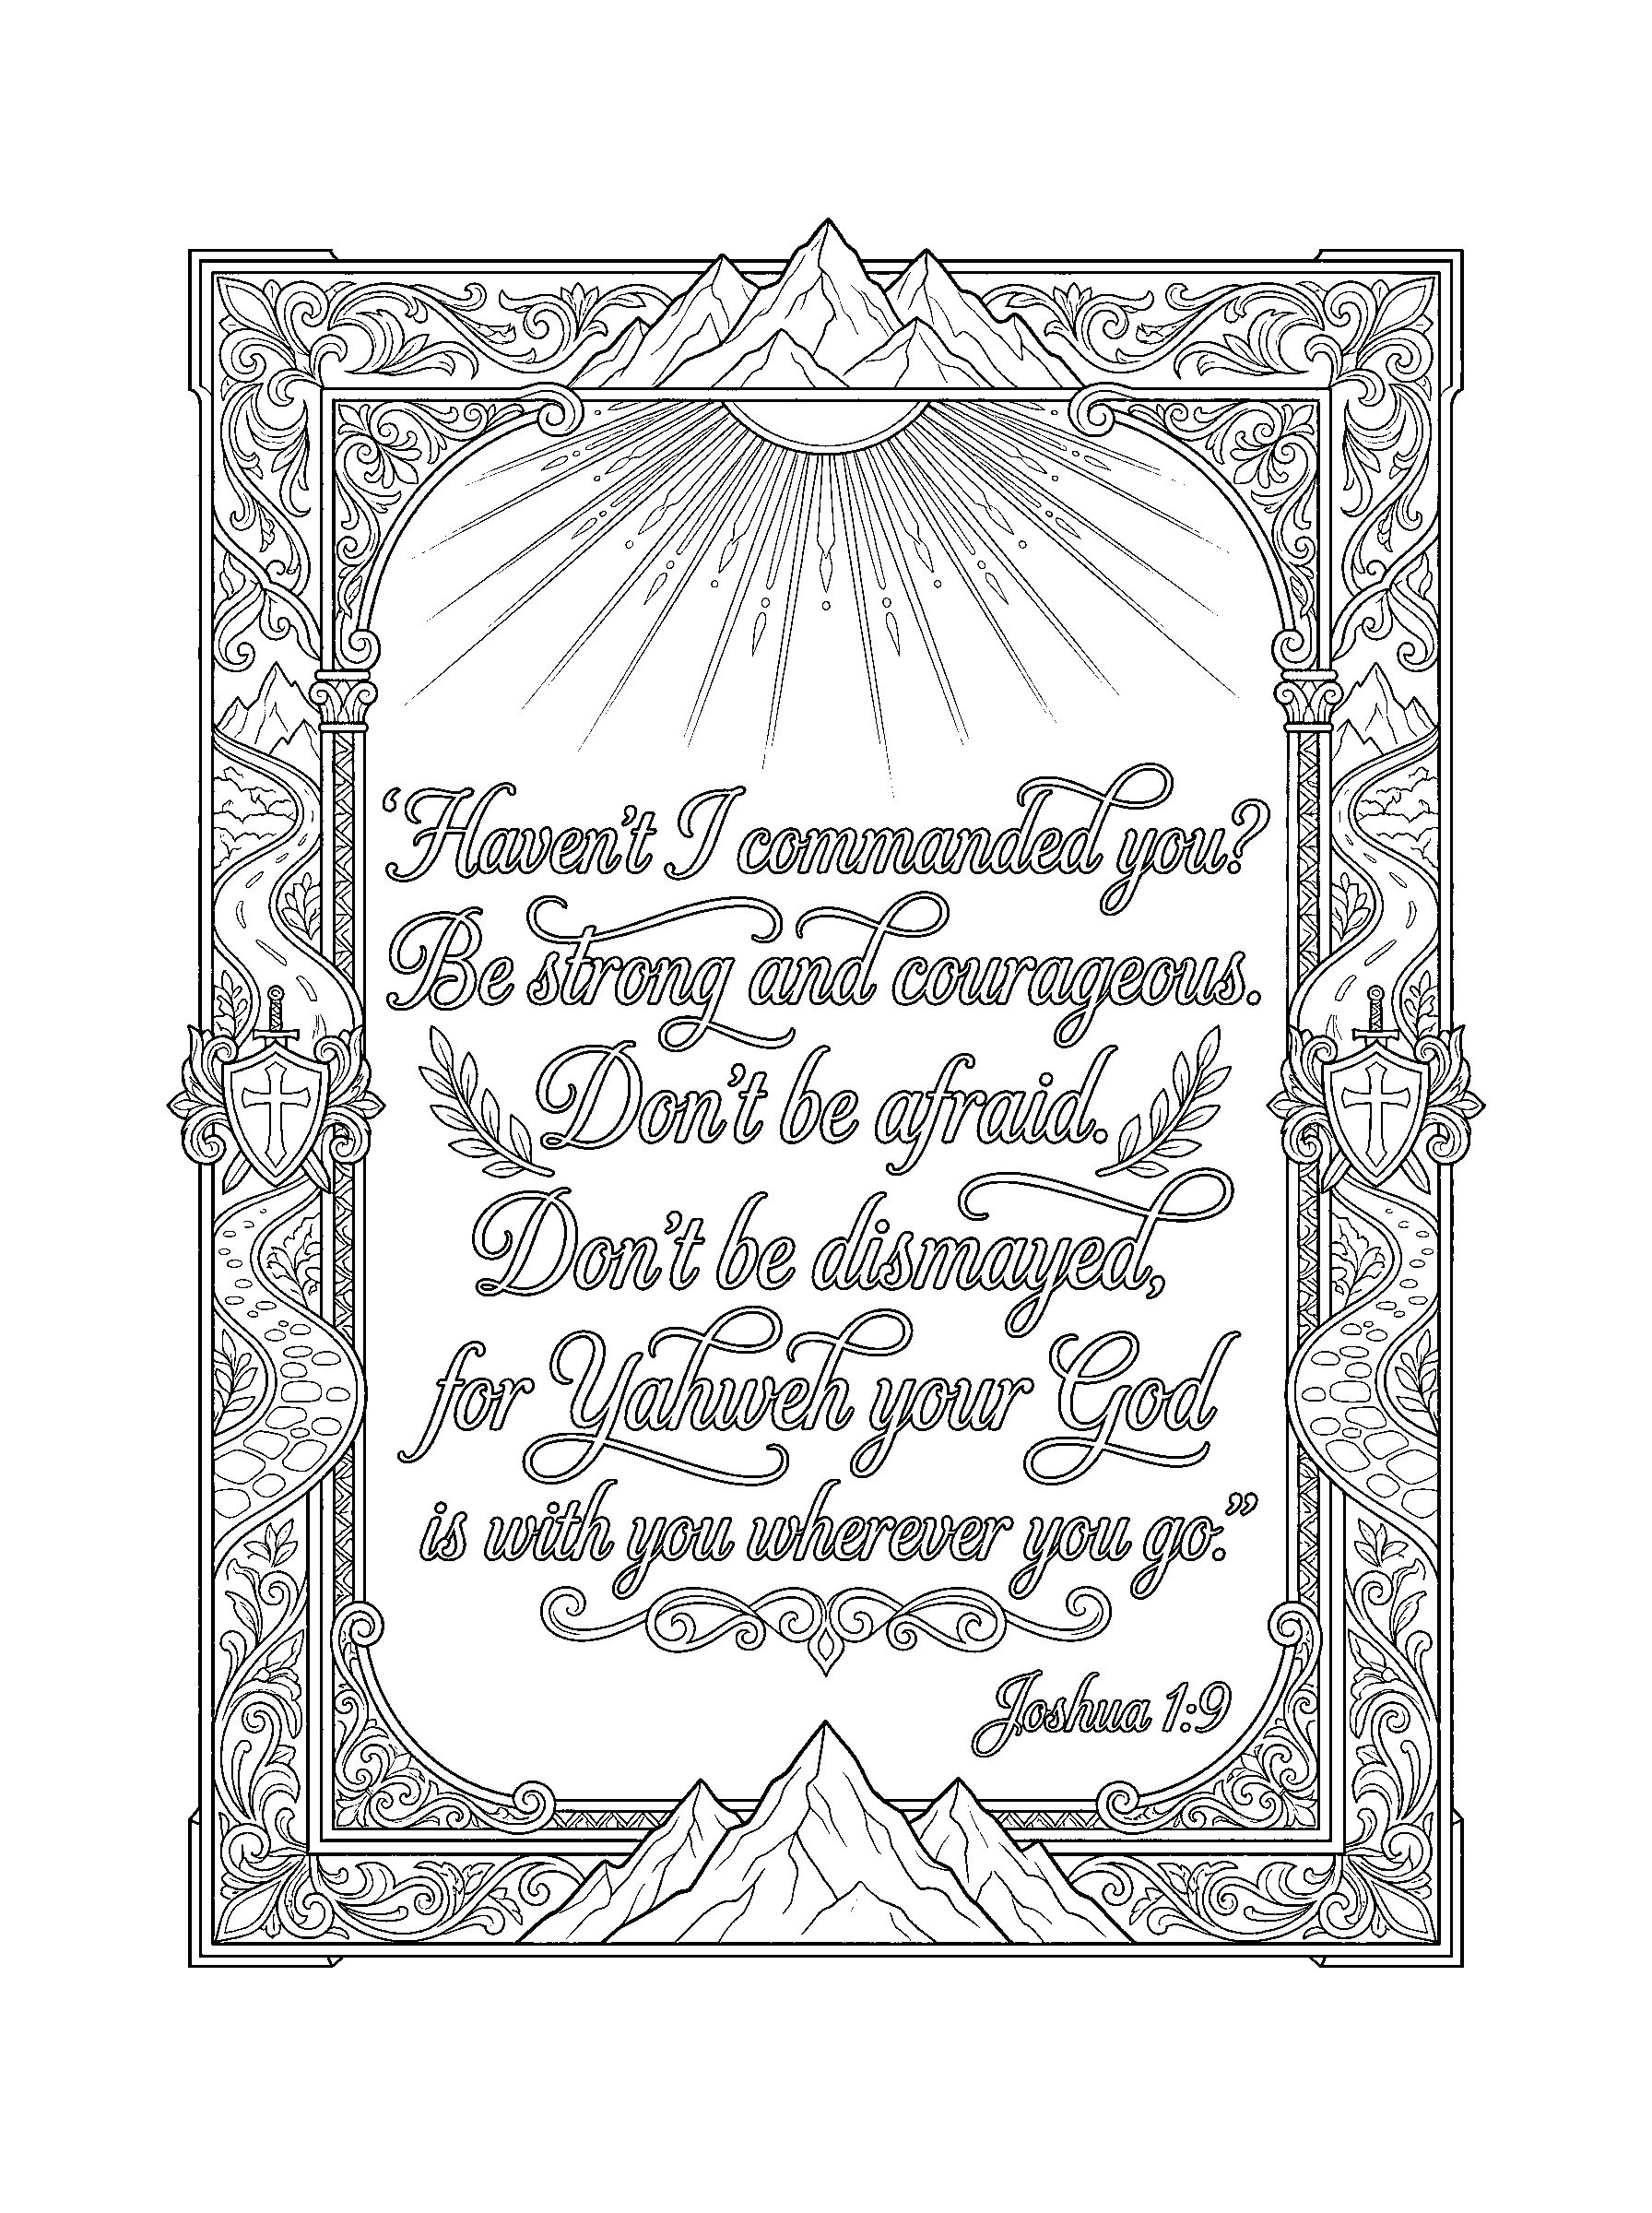 ‘Haven’t I commanded you?
Be strong and courageous.
Don’t be afraid.
Don’t be dismayed,
for Yahweh your God
is with you wherever you go.”
Joshua 1:9